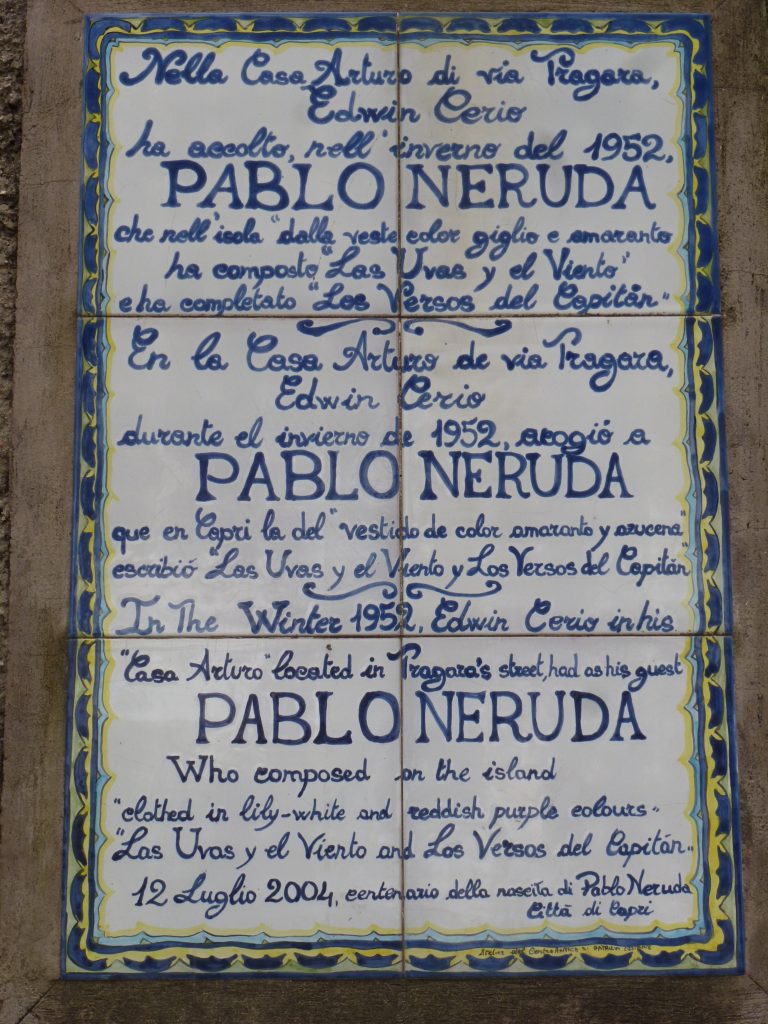 Nella Casa Arturo di via Tragara,
Edwin Cerio
ha accolto, nell'inverno del 1952,
PABLO NERUDA
che nell'isola "dalla veste color giglio e amaranto
ha composto "Las Uvas y el Viento"
e ha completato "Los Versos del Capitán"
En la Casa Arturo de via Tragara,
Edwin Cerio
durante el invierno de 1952, acogió a
PABLO NERUDA
que en Capri la del "vestido de color amaranto y azucena"
escribió "Las Uvas y el Viento y Los Versos del Capitán"
In The Winter 1952, Edwin Cerio in his
"Casa Arturo" located in Tragara's street, had as his guest
PABLO NERUDA
Who composed on the island
"clothed in lily-white and reddish purple colours"
"Las Uvas y el Viento and Los Versos del Capitán"
12 Luglio 2004, centenario della nascita di Pablo Neruda
Città di Capri
Atelier del